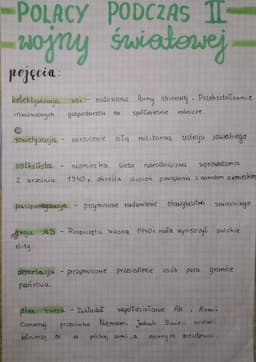 POLACY PODCZAS II
wojny światowej
pojęcia:
kolektywizacja wsi - masowa formy zbiorowej. Przekształcanie
gospodarstw na spółdzielnie rolnicze.
sowietyzacja - narzucenie siłą militarną ustroju sowieckiego
volkslista - niemiecka lista narodowościowa wprowadzona
2 września 1940 r. określa stopień powiązania z narodem niemieckim
paszportyzacja - przymusowe nadawanie obywatelstwa sowieckiego
akcja AB - Rozpoczęta wiosną 1940r. miała wyniszczyć polskie
elity.
deportacja - przymusowe przesiedlenie osób poza granice
państwa.
plan burza - Zakładał współdziałanie AK i Armii
Czerwonej przeciwko Niemcom. Jednak